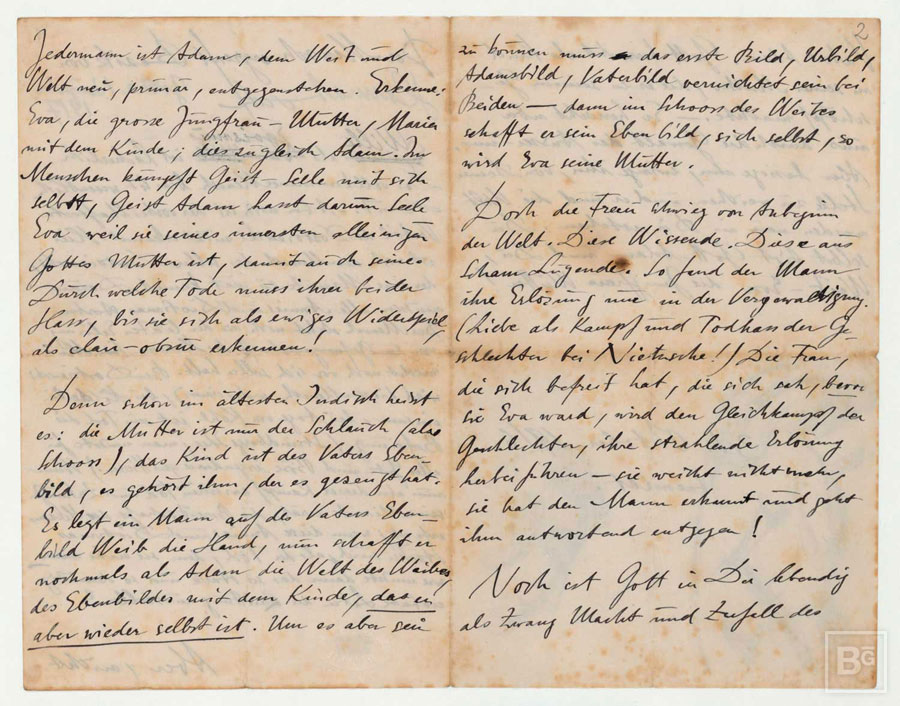 Jedermann ist Adam, dem Weib und
Welt neu, primär, entgegenstehen. Erkenne:
Eva, die grosse Jungfrau – Mutter, Maria
mit dem Kinde; dies zugleich Adam. Im
Menschen kämpft Geist – Seele mit sich
selbst, Geist Adam hasst darum Seele
Eva weil sie seines innersten alleinigen
Gottes Mutter ist, damit auch seine.
Durch welche Tode muss ihrer beider
Hass, bis sie sich als ewiges Widerspiel,
als clair–obscur erkennen!
Denn schon im ältesten Indisch heisst
es: die Mutter ist nur der Schlauch (alias
Schooss), das Kind ist des Vaters Eben–
bild, es gehört ihm, der es gezeugt hat.
Es legt ein Mann auf des Vaters Eben–
bild Weib die Hand, nun schafft er
nochmals als Adam die Welt des Weibes,
des Ebenbildes mit dem Kinde, das er
aber wieder selbst ist. Um es aber sein
2
zu können muss das erste Bild, Urbild,
Adamsbild, Vaterbild vernichtet sein bei
Beiden — dann im Schooss des Weibes
schafft er sein Ebenbild, sich selbst, so
wird Eva seine Mutter.
Doch die Frau schwieg von Anbeginn
der Welt. Diese Wissende. Diese aus
Scham Lügende. So fand der Mann
ihre Erlösung nur in der Vergewaltigung.
(Liebe als Kampf und Todhass der Ge
schlechter bei Nietzsche!) Die Frau,
die sich befreit hat, die sich sah, bevor
sie Eva ward, wird den Gleichkampf der
Geschlechter, ihre strahlende Erlösung
herbeiführen — sie weicht nicht mehr,
sie hat den Mann erkannt und geht
ihm antwortend entgegen!
Noch ist Gott in Dir lebendig
als Zwang Macht und Zufall des
BG